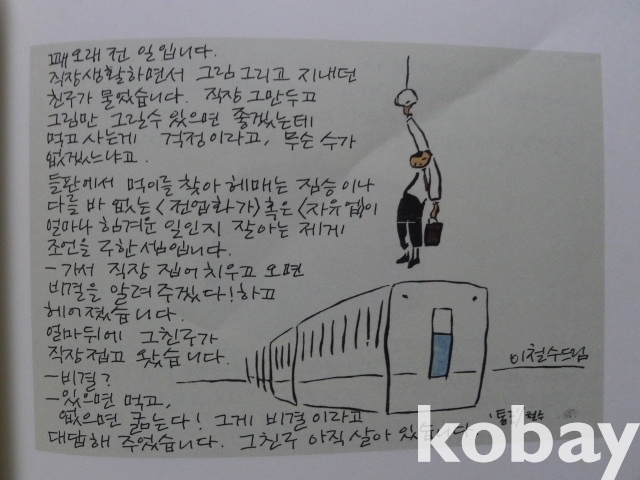 꽤 오래 전 일입니다.
직장생활하면서 그림 그리고 지내던
친구가 물었습니다. 직장 그만두고
그림만 그릴 수 있으면 좋겠는데
먹고 사는게 걱정이라고, 무슨 수가
없겠느냐고.
들판에서 먹이를 찾아 헤매는 짐승이나
다를 바 없는 <전업화가> 혹은 <자유업>이
얼마나 힘겨운 일인지 잘 아는 제게
조언을 구한 셈입니다.
- 가서 직장 집어치우고 오면
비결을 알려주겠다! 하고
헤어졌습니다.
얼마뒤에 그 친구가
직장 접고 왔습니다.
- 비결?
- 있으면 먹고,
없으면 굶는다! 그게 비결이라고
대답해 주었습니다. 그 친구 아직 살아 있습니다.
이철수드림
kobay